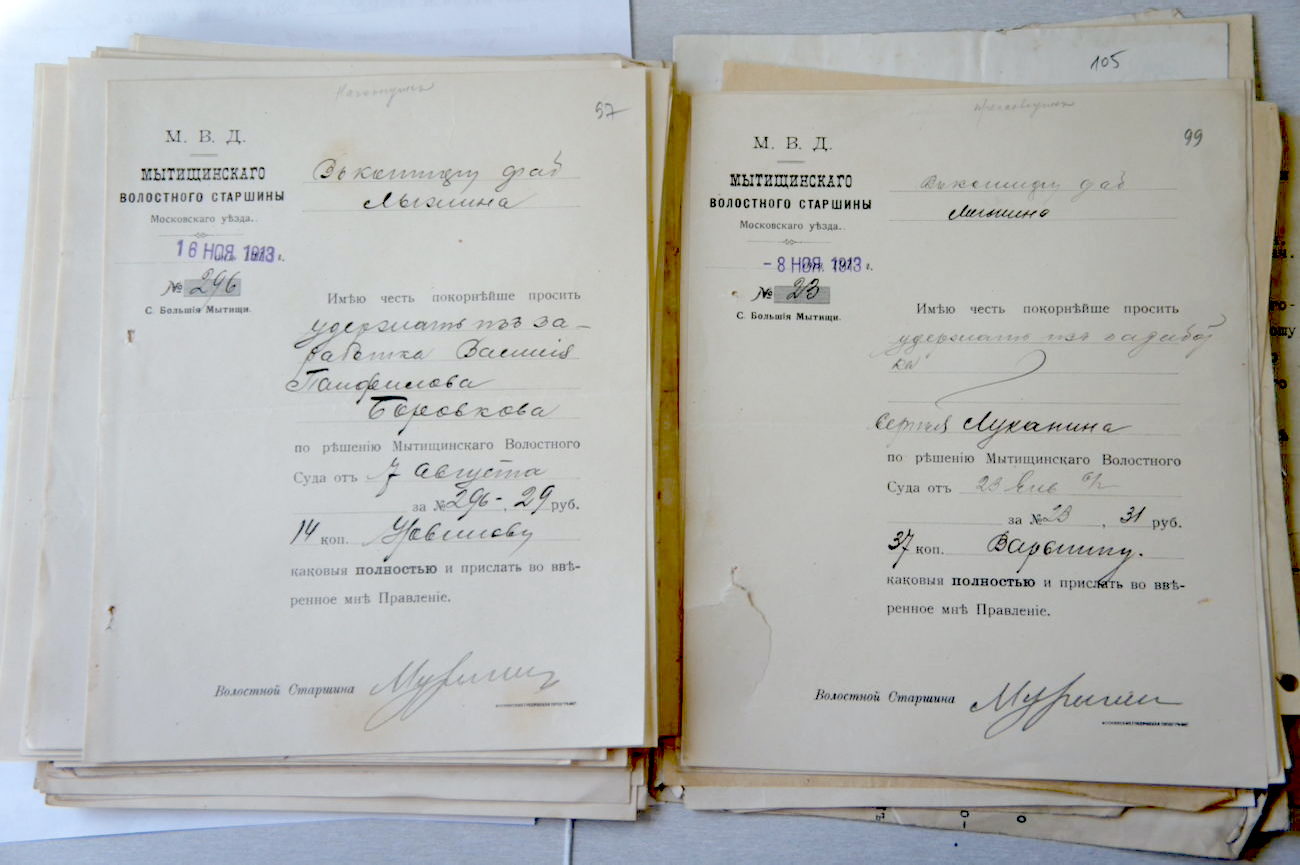 97
М. В. Д.
МЫТИЩИНСКАГО
ВОЛОСТНОГО СТАРШИНЫ
Московскаго уѣзда.
16 НОЯ. 1913 г.
№ 296
С. Большія Мытищи.
Въ контору фаб
Имѣю честь покорнѣйше просить
удержать изъ за-
работка Василія
Панфилова
Боровкова
по рѣшенію Мытищинскаго Волостного
Суда отъ 7 Августа
за № 296-, 29 руб.
14 коп.
каковыя полностью и прислать во ввѣ-
ренное мнѣ Правленіе.
Волостной Старшина
105
99
М. В. Д.
МЫТИЩИНСКАГО
ВОЛОСТНОГО СТАРШИНЫ
Московскаго уѣзда.
- 8 НОЯ. 1913 г.
№ 23
С. Большія Мытищи.
Въ контору фаб
Имѣю честь покорнѣйше просить
удержать изъ заработ
ка
Сергѣя Луканина
по рѣшенію Мытищинскаго Волостного
Суда отъ 23 Янв
за № 23, 31 руб.
37 коп.
каковыя полностью и прислать во ввѣ-
ренное мнѣ Правленіе.
Волостной Старшина